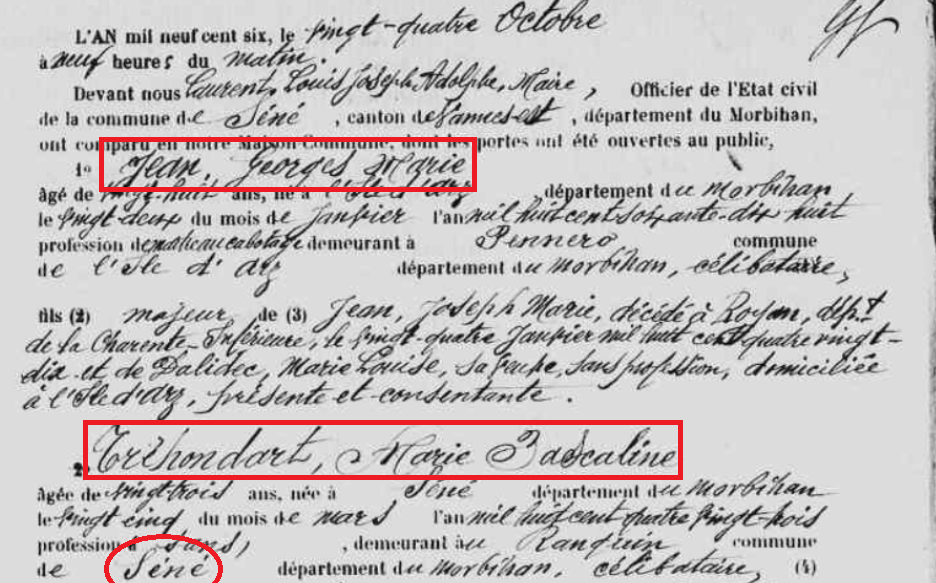 L'AN mil neuf cent six, le vingt-quatre Octobre
à neuf heures du matin.
Devant nous Laurent, Louis Joseph Adolphe, Maire, Officier de l'Etat civil
de la commune de Séné, canton de Vannes est, département du Morbihan,
ont comparu en notre Maison Commune, dont les portes ont été ouvertes au public,
1º Jean, Georges Marie
âgé de vingt-huit ans, né à l'Ile d'arz département du Morbihan
le vingt deux du mois de janvier l'an mil huit cent soixante-dix huit
profession de au cabotage demeurant à Pennero commune
de l'Ile d'arz département du Morbihan, célibataire,
fils (2) majeur de (3) Jean, Joseph Marie, décédé à Royan, dépt
de la Charente-Inférieure, le vingt-quatre Janvier mil huit cent quatre vingt-
dix et de Dalidec, Marie Louise, sa veuve, sans profession, domiciliée
à l'Ile d'arz, présente et consentante.
2. Trihondart, Marie Pascaline
âgée de vingt trois ans, née à Séné département du Morbihan
le vingt cinq du mois de mars l'an mil huit cent quatre vingt-trois
profession sans, demeurant au Ranquin commune
de Séné département du Morbihan, célibataire, (4)